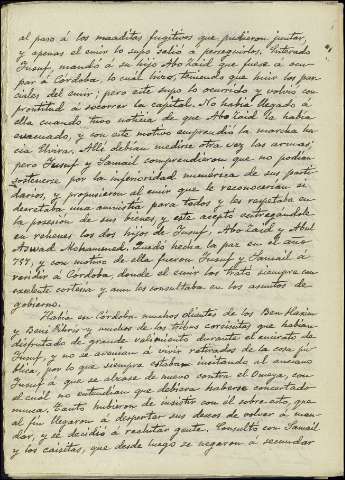 al paso á los maaditas fugitivos que pudieron juntar,
y apenas el emir lo supo salió á perseguirlos. Enterado
Yusuf, mandó á su hijo Abo Zaid que fuese á ocu-
par á Córdoba, lo cuál hizo, teniendo que huir los par-
ciales del emir; pero este supo lo ocurrido y volvió con
prontitud á socorrer la capital. No había llegado á
ella cuando tuvo noticia de que Abo Zaid la había
evacuado, y con este motivo emprendió la marcha ha-
cia Elvira. Allí debían medirse otra vez las armas;
pero Yusuf y Samail comprendieron que no podían
sostenerse por la inferioridad numérica de sus parti-
darios, y propusieron al emir que le reconocerían si
decretaba una amnistía para todos y les respetaba en
la posesión de sus bienes, y este aceptó entregándole
en rehenes los dos hijos de Yusuf, Abo Zaid y Abul
Aswad Mohammed. Quedó hecha la paz en el año
757, y con motivo de ella fueron Yusuf y Samail á
residir á Córdoba, donde el emir los trató siempre con
exelente cortesía y aun les consultaba en los asuntos de
gobierno.
Había en Córdoba muchos clientes de los Ben Haxim
y Beni Fihris y muchos de las tribus coreisitas que habían
disfrutado de grande valimiento durante el emirato de
Yusuf, y no se avenían á vivir retirados de la cosa pú-
blica, por lo que siempre estaban incitando al anciano
Yusuf á que se alzase de nuevo contra el Omeya, con
el cuál no entendían que debiera haberse concertado
nunca. Tanto hubieron de insistir con él sobre esto, que
al fin llegaron á despertar sus deseos de volver á man-
dar, y se decidió á reclutar gente. Consultó con Samail
y los caisitas, que desde luego se negaron á secundar